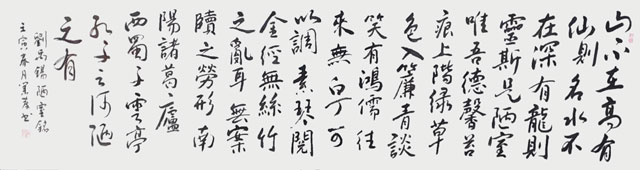 山不在高有
仙則名水不
在深有龍則
靈斯是陋室
唯吾德馨苔
痕上階绿草
色入簾青談
笑有鴻儒往
來無白丁可
以調素琴閱
金經無絲竹
之亂耳無案
牘之勞形南
陽諸葛廬
西蜀子雲亭
孔子云何陋
之有
劉禹錫陋室銘
壬寅春月書